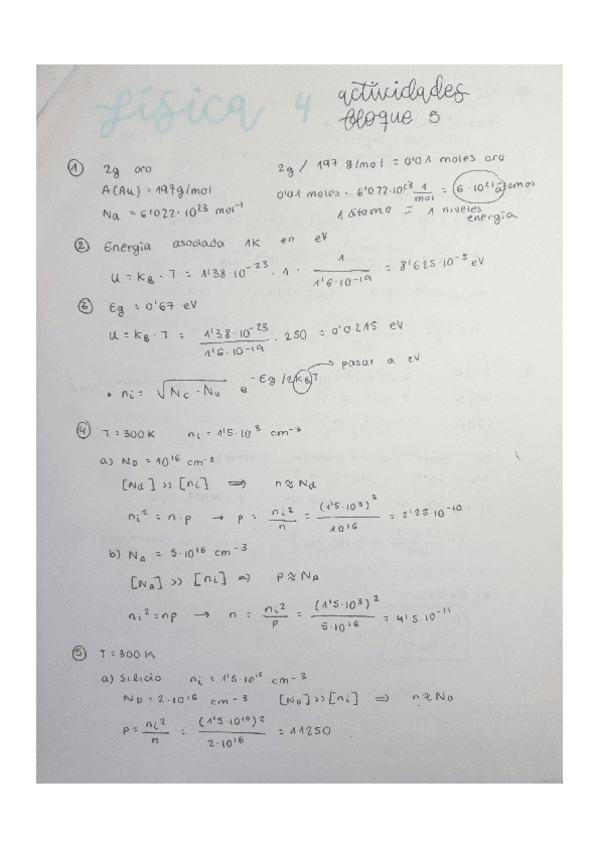 física 4 actividades
bloque 5
① 2g oro 2g / 197 g/mol = 0'01 moles oro
A(Au) = 197g/mol 0'01 moles · 6'022·10²³ 1/mol = 6·10²¹ átomos
Na = 6'022·10²³ mol⁻¹ 1 átomo = 1 niveles energía
② Energía asociada 1K en eV
U = K_B · T = 1'38·10⁻²³ · 1 · 1/1'6·10⁻¹⁹ = 8'625·10⁻⁵ eV
③ Eg = 0'67 eV
U = K_B · T = 1'38·10⁻²³/1'6·10⁻¹⁹ · 250 = 0'0215 eV
• ni = √Nc · Nv e^-Eg/2K_BT → pasar a eV
④ T = 300K ni = 1'5·10³ cm⁻³
a) N_D = 10¹⁶ cm⁻³
[Nd] >> [ni] ⇒ n ≈ Nd
ni² = n·p → p = ni²/n = (1'5·10³)²/10¹⁶ = 2'25·10⁻¹⁰
b) N_A = 5·10¹⁶ cm⁻³
[N_A] >> [ni] ⇒ p ≈ N_A
ni² = np → n = ni²/p = (1'5·10³)²/5·10¹⁶ = 4'5·10⁻¹¹
⑤ T = 300K
a) Silicio ni = 1'5·10¹⁰ cm⁻³
N_D = 2·10¹⁶ cm⁻³ [N_D] >> [ni] ⇒ n ≈ N_D
p = ni²/n = (1'5·10¹⁰)²/2·10¹⁶ = 11250